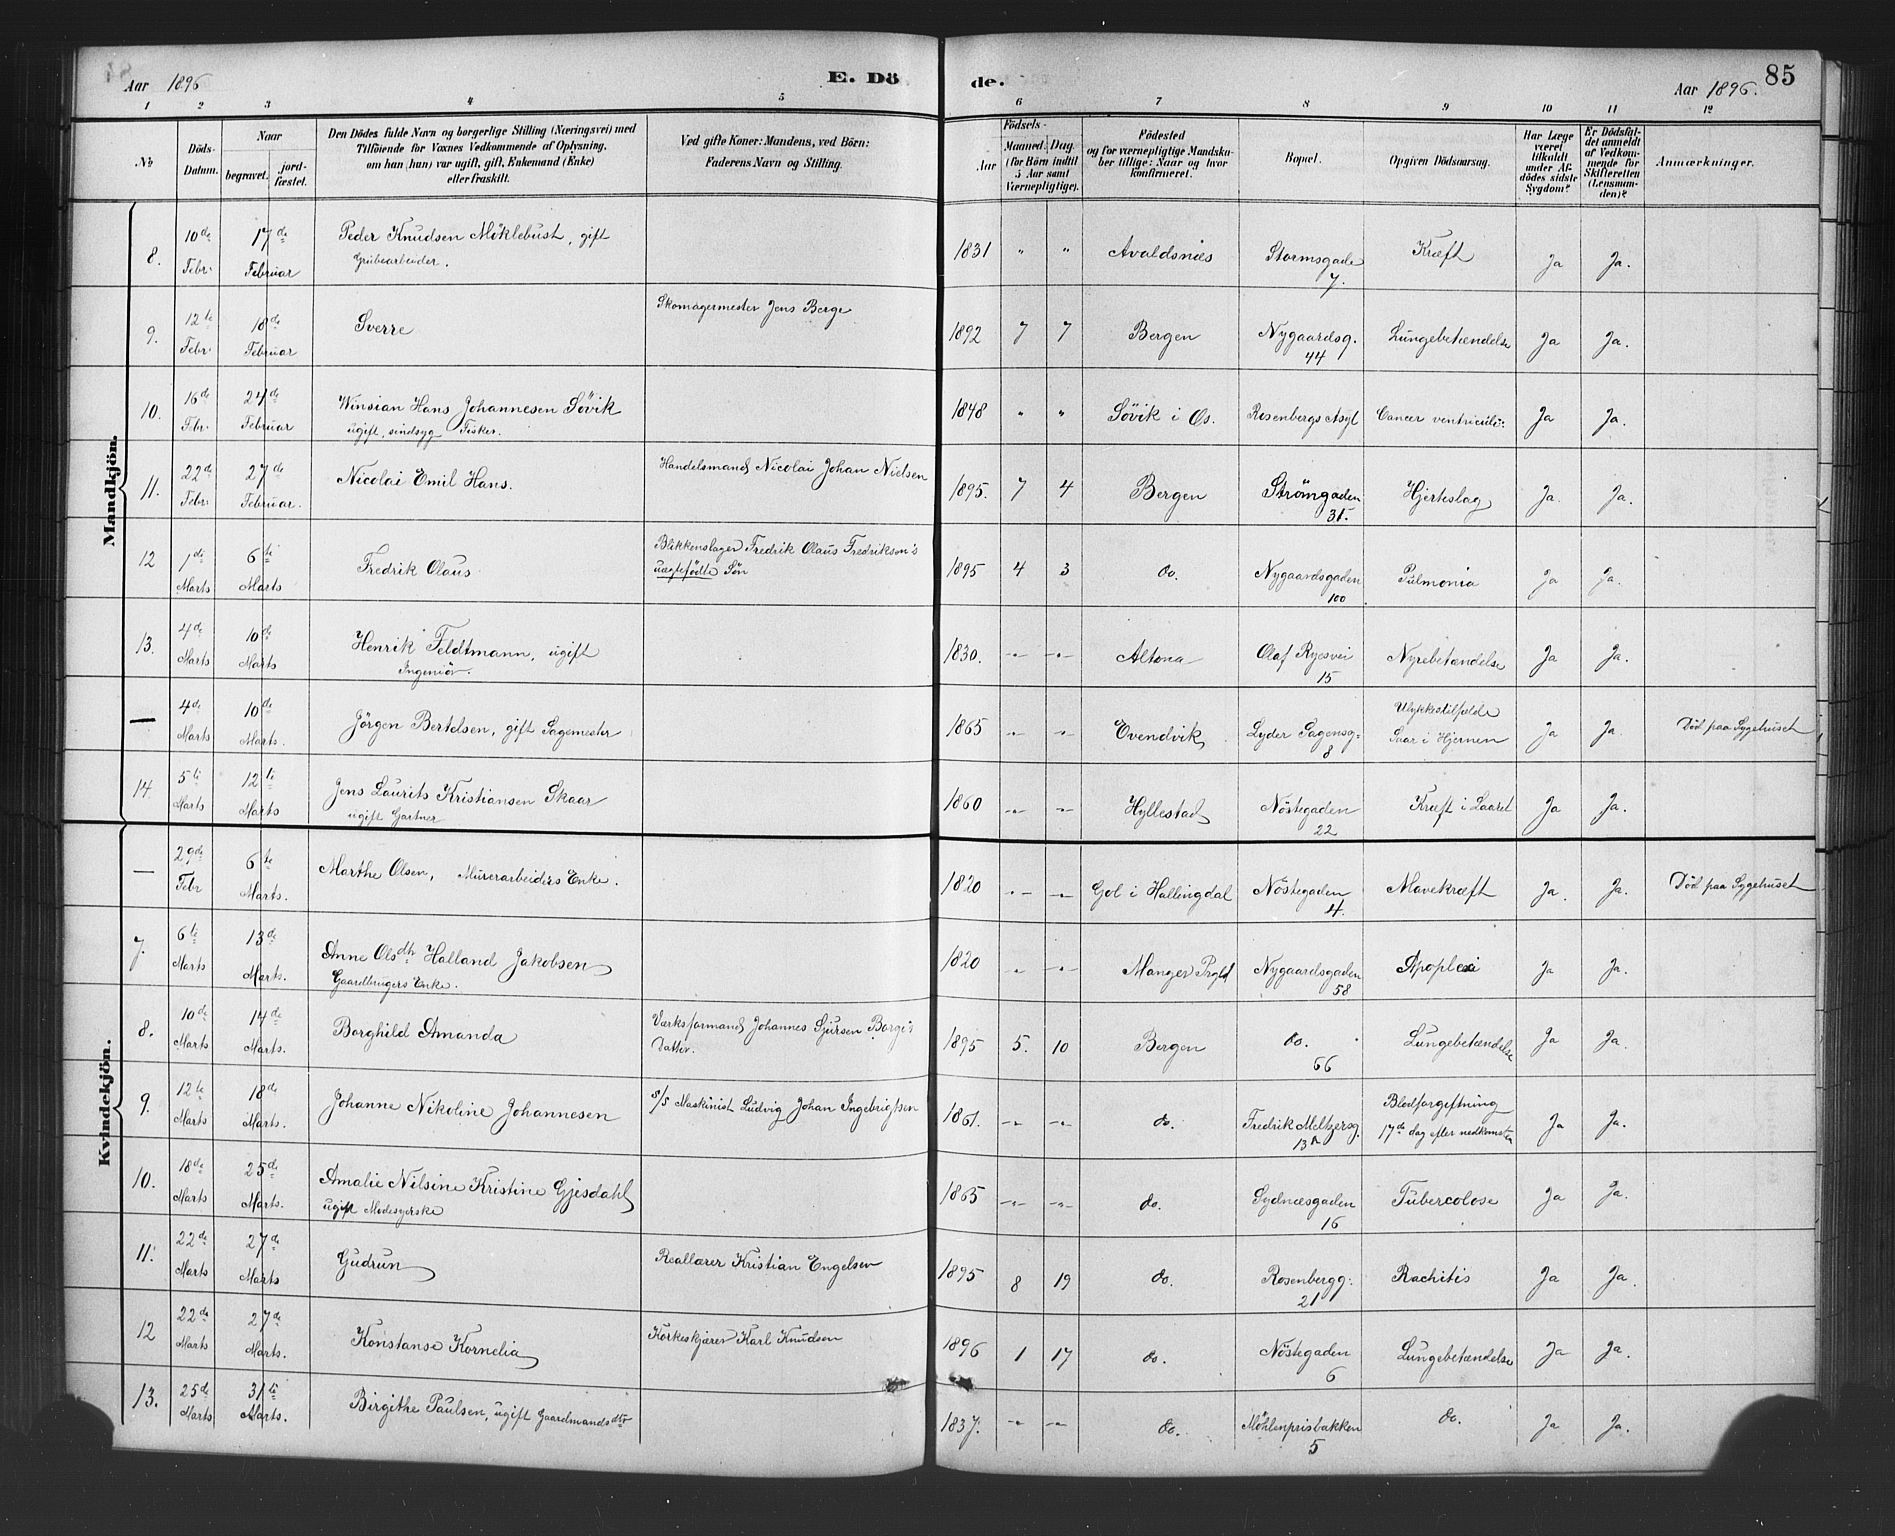 Aar 1896
E. Döde.
Aar 1896.
85
1 2 3 4 5 6 7 8 9 10 11 12
No
Döds-Datum.
Naar
begravet.
jord-fæstet.
Den Dödes fulde Navn og borgerlige Stilling (Næringsvei) med
Tilföiende for Voxnes Vedkommende af Oplysning,
om han (hun) var ugift, gift, Enkemand (Enke)
eller fraskilt.
Ved gifte Koner: Mandens, ved Börn:
Faderens Navn og Stilling.
Födsels-
Aar
Maaned. Dag.
(for Börn indtil
5 Aar samt
Værnepligtige).
Födested
og for værnepligtige Mandska-
ber tillige: Naar og hvor
konfirmeret.
Bopæl.
Opgiven Dödsaarsag.
Har Læge
været
tilkaldt
under Af-
dödes sidste
Sygdom?
Er Dödsfal-
det anmeldt
af Vedkom-
mende for
Skifteretten
(Lensman-
den)?
Anmærkninger.
Mandkjön.
8. 10de Febr. 17de Februar Peder Knudsen Möklebust, gift
Grubearbeider.
1831 " " Avaldsnæs Stormsgade 7. Kræft Ja Ja.
9. 12te Febr. 18de Februar Sverre Skomagermester Jens Berge 1892 7 7 Bergen Nygaardsg. 44 Lungebetændelse Ja Ja.
10. 16de Febr. 24de Februar Winsian Hans Johannesen Sövik
ugift, sindsyg Fisker.
1848 " " Sövik i Os. Rosenbergs Asyl Cancer ventriculi: Ja Ja.
11. 22de Febr. 27de Februar. Nicolai Emil Hans. Handelsmand Nicolai Johan Nielsen 1895. 7 4 Bergen Strömgaden 31. Hjerteslag Ja. Ja.
12 1de Marts 6te Marts Fredrik Olaus Blikkenslager Fredrik Olaus Fredrikson's
uægtefödte Sön
1895 4 3 do. Nygaardsgaden 100 Pulmonia Ja Ja.
13. 4de Marts 10de Marts Henrik Feldtmann, ugift
Ingeniör.
1830. -"- -"- Altona Olaf Ryesvei 15 Nyrebetændelse Ja Ja.
— 4de Marts 10de Marts. Jörgen Bertelsen, gift Sagemester 1865 -"- -"- Evendvik Lyder Sagensg= 8 Ulykkestilfælde
Saar i Hjernen Ja Ja. Död paa Sygehuset
14. 5te Marts 12te Marts Jens Laurits Kristiansen Skaar
ugift Gartner
1860 -"- -"- Hyllestad Nöstegaden 22 Kræft i Laaret Ja Ja.
Kvindekjön.
— 29de Febr 6te Marts. Marthe Olsen, Murerarbeiders Enke. 1820 -"- -"- Gol i Hallingdal Nöstegaden 4. Mavekræft Ja. Ja. Död paa Sygehuset
7. 6te Marts 13de Marts. Anne Olsdtr Halland Jakobsen
Gaardbrugers Enke.
1820 -"- -"- Manger Prgld Nygaardsgaden 58 Apoplexi Ja Ja.
8. 10de Marts 14de Marts. Borghild Amanda Værksformand Johannes Sjursen Borge's
Datter.
1895 5. 10 Bergen do. 66 Lungebetændelse Ja Ja.
9. 12te Marts 18de Marts. Johanne Nikoline Johannesen S/S Maskinist Ludvig Johan Ingebrigtsen 1861. -"- -"- do. Fredrik Meltzersg. 13A Blodforgiftning
17de dag efter nedkomsten Ja Ja.
10. 18de Marts 25de Marts. Amalie Nilsine Kristine Gjesdahl
ugift Modesyerske
1865 -"- -"- do. Sydnæsgaden 16 Tubercolose Ja Ja.
11. 22de Marts 27de Marts Gudrun Reallærer Kristian Engelsen 1895 8 19 do. Rosenbergg: 21 Rachitis Ja Ja.
12 22de Marts 27de Marts. Konstanse Kornelia Korkeskjærer Karl Knudsen 1896 1 17 do. Nöstegaden 6 Lungebetændelse Ja Ja.
13. 25de Marts 31te Marts. Birgithe Paulsen, ugift Gaardmandsdtr 1837. -"- -"- do. Möhlenprisbakken 5 do. Ja Ja.